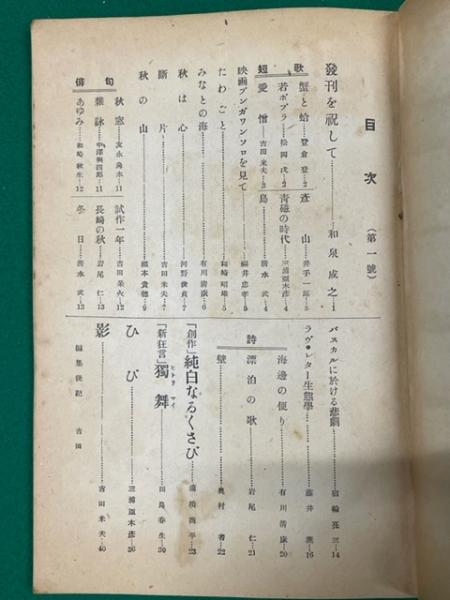 目次
(第一號)
發刊を祝して……和泉成之…1
短歌
蟹と蛤……登倉登…2
若ポプラ……松岡茂…2
愛憎……吉田米夫…3
彦山……井手一郎…3
青磁の時代……三浦亟木彦…4
島……清水武…4
映画ブンガワンソロを見て……福井忠孝…5
たわごと……和崎昭雄…5
みなとの海……有川清康…6
秋は心……河野俊貞…7
斷片……吉田米夫…7
秋の山……橋本貴穂…9
俳句
秋窓……友永鳥水…11
雜詠……中澤與四郎…11
あゆみ……和崎秋生…12
試作一年……吉田米火…12
長崎の秋……岩尾仁…13
冬日……清水武…13
パスカルに於ける悲劇……宿輪亮三…14
ラヴ・レター生態學……藤井燕…16
詩
海邊の便り……有川清康…20
漂泊の歌……岩尾仁…21
壁……奥村者…22
『創作』純白なるくさび……清橋尚平…23
『新狂言』獨舞 ヒトリ マイ……田島春生…30
ひび……三浦亟木彦…36
影……吉田米夫…40
編集後記 吉田